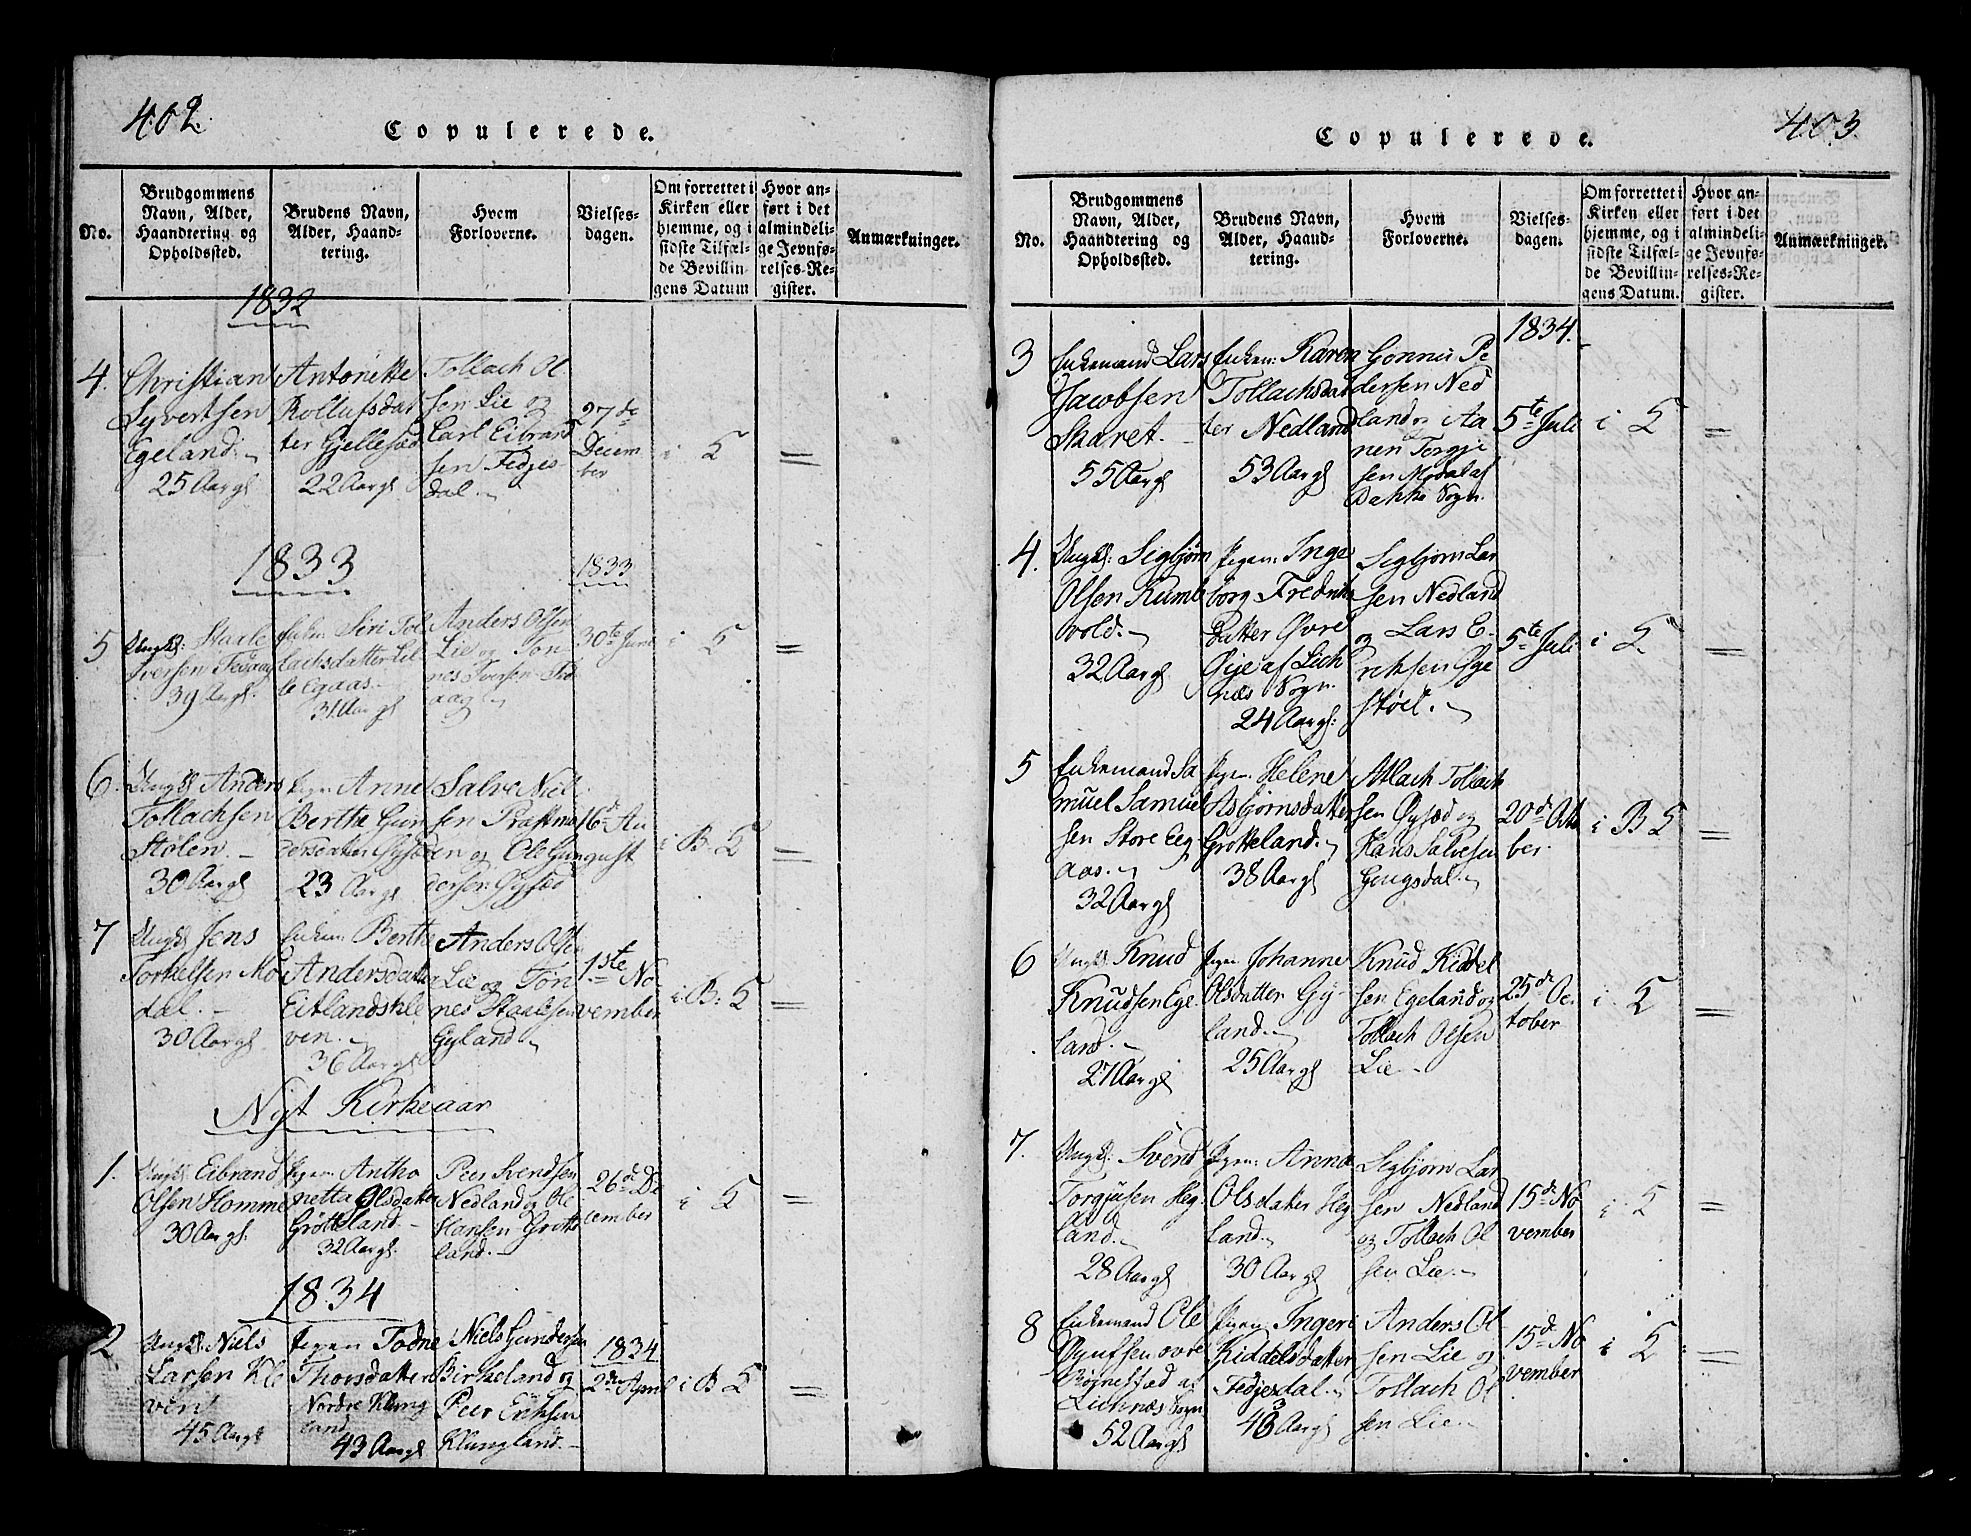 402.
Copulerede.
No.
Brudgommens
Navn, Alder,
Haandtering og
Opholdssted.
Brudens Navn,
Alder, Haand-
tering.
Hvem
Forloverne.
Vielses-
dagen.
Om forrettet i
Kirken eller
hjemme, og i
sidste Tilfæl-
de Bevillin-
gens Datum
Hvor an-
ført i det
almindeli-
ge Jevnfø-
relses-Re-
gister.
Anmærkninger.
1832
4.
Christian
Syvertsen
Egeland.
25 Aar gl
Antonette
Rollufsdat
ter Gjellesad
22 Aar gl
Tollach Ol
sen Lie og
Carl Eibrand
sen Fedjes-
dal.
27de
Decem
ber
i 5
=
1833
1833
5
Ungk: Staale
Iversen
39 Aar gl.
Enken Siri Tol
lachsdatter Lil
le Egaas.
31 Aar gl
Anders Olsen
Lie og Ton
nes Iversen
30te Juni
i 5
=
6.
Ungk Anders
Tollachsen
Stølen.
30 Aar gl
Pigen Anne
Berthe Gun
dersdatter
23 Aar gl
Salve Niel
sen
og Ole Gun
dersen
16de Au
gust
i B. 5
=
7
Ungk Jens
Torkelsen Mo
dal.
30 Aar gl
Enken Berthe
Andersdatter
Eitlandskle
ven.
36 Aar gl
Anders Olsen
Lie og Ton
nes Staalesen
Gyland
1ste No
vember
i B: 5
=
Nyt Kirkeaar
1.
Ungk: Eibrand
Olsen Homme
30 Aar gl.
Pigen Antho
netta Olsdatter
Grötteland.
32 Aar gl.
Peer Svendsen
Nedland og Ole
Hansen Grotte
land.
26de De
cember
i 5
=
1834
2
Ungk: Niels
Larsen Kle
ven
45 Aar gl
Pigen Todne
Thorsdatter
Nordre Klung
land
43 Aar gl
Niels Gundersen
Birkeland og
Peer Eriksen
Klungland.
1834
2den April
i B 5
=
403.
Copulerede.
No.
Brudgommens
Navn, Alder,
Haandtering og
Opholdssted.
Brudens Navn,
Alder, Haand-
tering.
Hvem
Forloverne.
Vielses-
dagen.
Om forrettet i
Kirken eller
hjemme, og i
sidste Tilfæl-
de Bevillin-
gens Datum.
Hvor an-
ført i det
almindeli-
ge Jevnfø-
relses-Re-
gister.
Anmærkninger.
1834.
3
Enkemand Lars
Jacobsen
Skaret.
55 Aar gl
Enken: Karen
Tollachsdat
ter Nedland
53 Aar gl
Gonnu Pe
dersen Ned
land og Aa
nen Torgje
sen Modal af
Bakke Sogn.
5te Juli
i 5
=
4.
Ungk: Segbjørn
Olsen Rumle
vold.
32 Aar gl
Pigen: Inge
borg Fredriks
datter Øvre
Øye af Lich
næs Sogn.
24 Aar gl:
Segbjørn Lar
sen Nedland
og Lars E
riksen Øye
støel.
5te Juli
i 5
=
5
Enkemand Sa
muel Samuel
sen Store Eeg
aas.
32 Aar gl
Pigen: Helene
Asbjørnsdatter
Grotteland.
38 Aar gl
Atlach Tollach
sen og
Hans Salvesen
Gengsdal.
20de Octo
ber.
i B 5
=
6
Ungk Knud
Knudsen Ege
land.
27 Aar gl
Pigen Johanne
Olsdatter Gy-
land.
25 Aar gl
Knud Kiddel
sen Egeland og
Tollach Olsen
Lie.
25de Oc
tober
i 5
=
7.
Ungk: Svend
Torgjusen Heg
land.
28 Aar gl
Pigen: Anna
Olsdatter Heg
land.
30 Aar gl
Segbjørn Lar
sen Nedland
og Tollach Ol
sen Lie.
15de No
vember
i 5
=
8
Enkemand Ole
øvre
af
Lichnæs Sogn
52 Aar gl
Pigen: Ingeri
Kiddelsdatter
Fedjesdal.
43 Aar gl
Anders Ol
sen Lie og
Tollach Ol
sen Lie.
15de No
vember
i 5
=